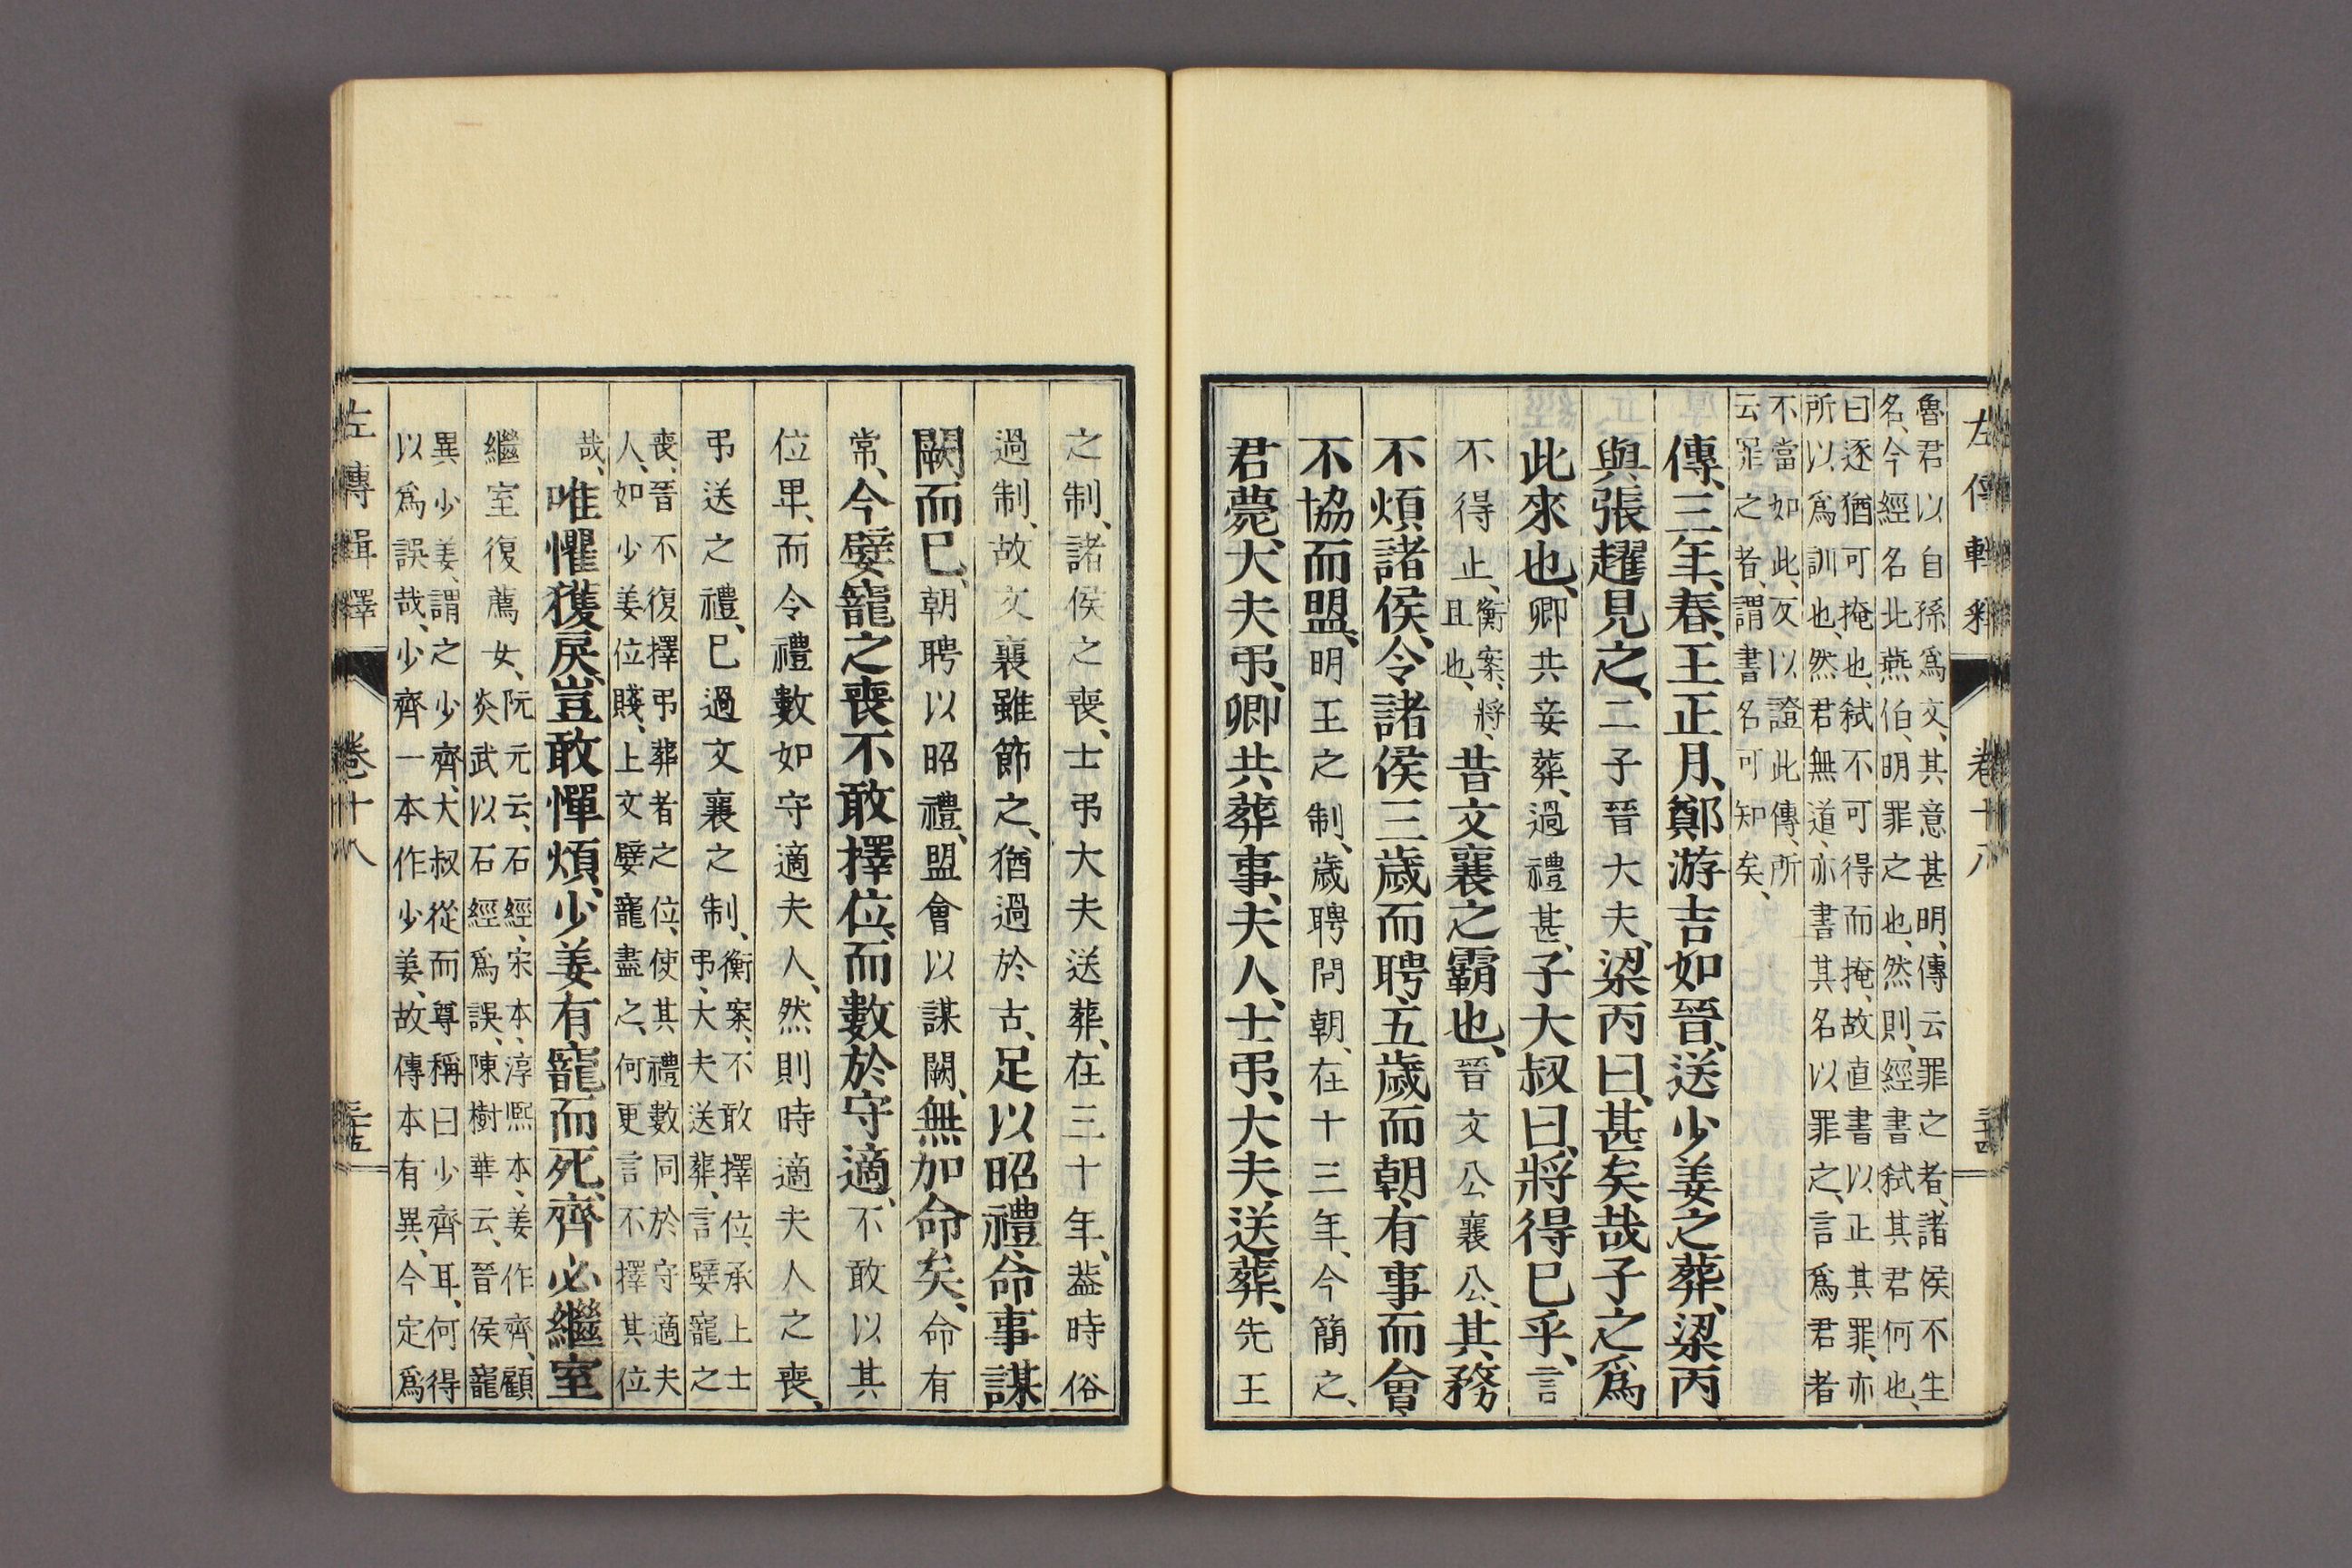 左傳輯釋 卷十八
魯君以自孫爲文、其意甚明、傳云罪之者、諸侯不生
名、今經名北燕伯、明罪之也、然則、經書弑其君何也、
曰逐猶可掩也、弑不可可得而掩、故直書以正其罪、亦
所以爲訓也、然君無道、亦書其名以罪之、言爲君者
不當如此、反以證此傳、所
云罪之者、謂書名可知矣、
傳、三年、春、王正月、鄭游吉如晉、送少姜之葬、梁丙
與張趯見之、二子晉大夫、梁丙曰、甚矣哉子之爲
此來也、卿共妾葬、過禮甚、子大叔曰、將得已乎、言
不得止、衡案、將、且也、昔文襄之霸也、晉文公襄公、其務
不煩諸侯、令諸侯三歲而聘、五歲而朝、有事而會、
不協而盟、明王之制、歲聘問朝、在十三年、今簡之、
君薨、大夫弔、卿共葬事、夫人、士弔、大夫送葬、先王
之制、諸侯之喪、士弔大夫送葬、在三十年、葢時俗
過制、故文襄雖節之、猶過於古、足以昭禮、命事謀
闕而已、朝聘以昭禮、盟會以謀闕、無加命矣、命有
常、今嬖寵之喪不敢擇位、而數於守適、不敢以其
位卑、而令禮數如守適夫人、然則時適夫人之喪、
弔送之禮、已過文襄之制、衡案、不敢擇位、承上士弔、大夫送葬、言嬖寵之
喪、晉不復擇弔葬者之位、使其禮數同於守適夫
人、如少姜位賤、上文嬖寵盡之、何更言不擇其位
哉、唯懼獲戾、豈敢憚煩、少姜有寵而死、齊必繼室
繼室復薦女、阮元云、石經、宋本、淳熙本、姜作齊、顧炎武以石經爲誤、陳樹華云、晉侯寵
異少姜、謂之少齊、大叔從而尊稱曰少齊耳、何得
以爲誤哉、少齊一本作少姜、故傳本有異、今定爲
左傳輯釋 卷十八 三十五